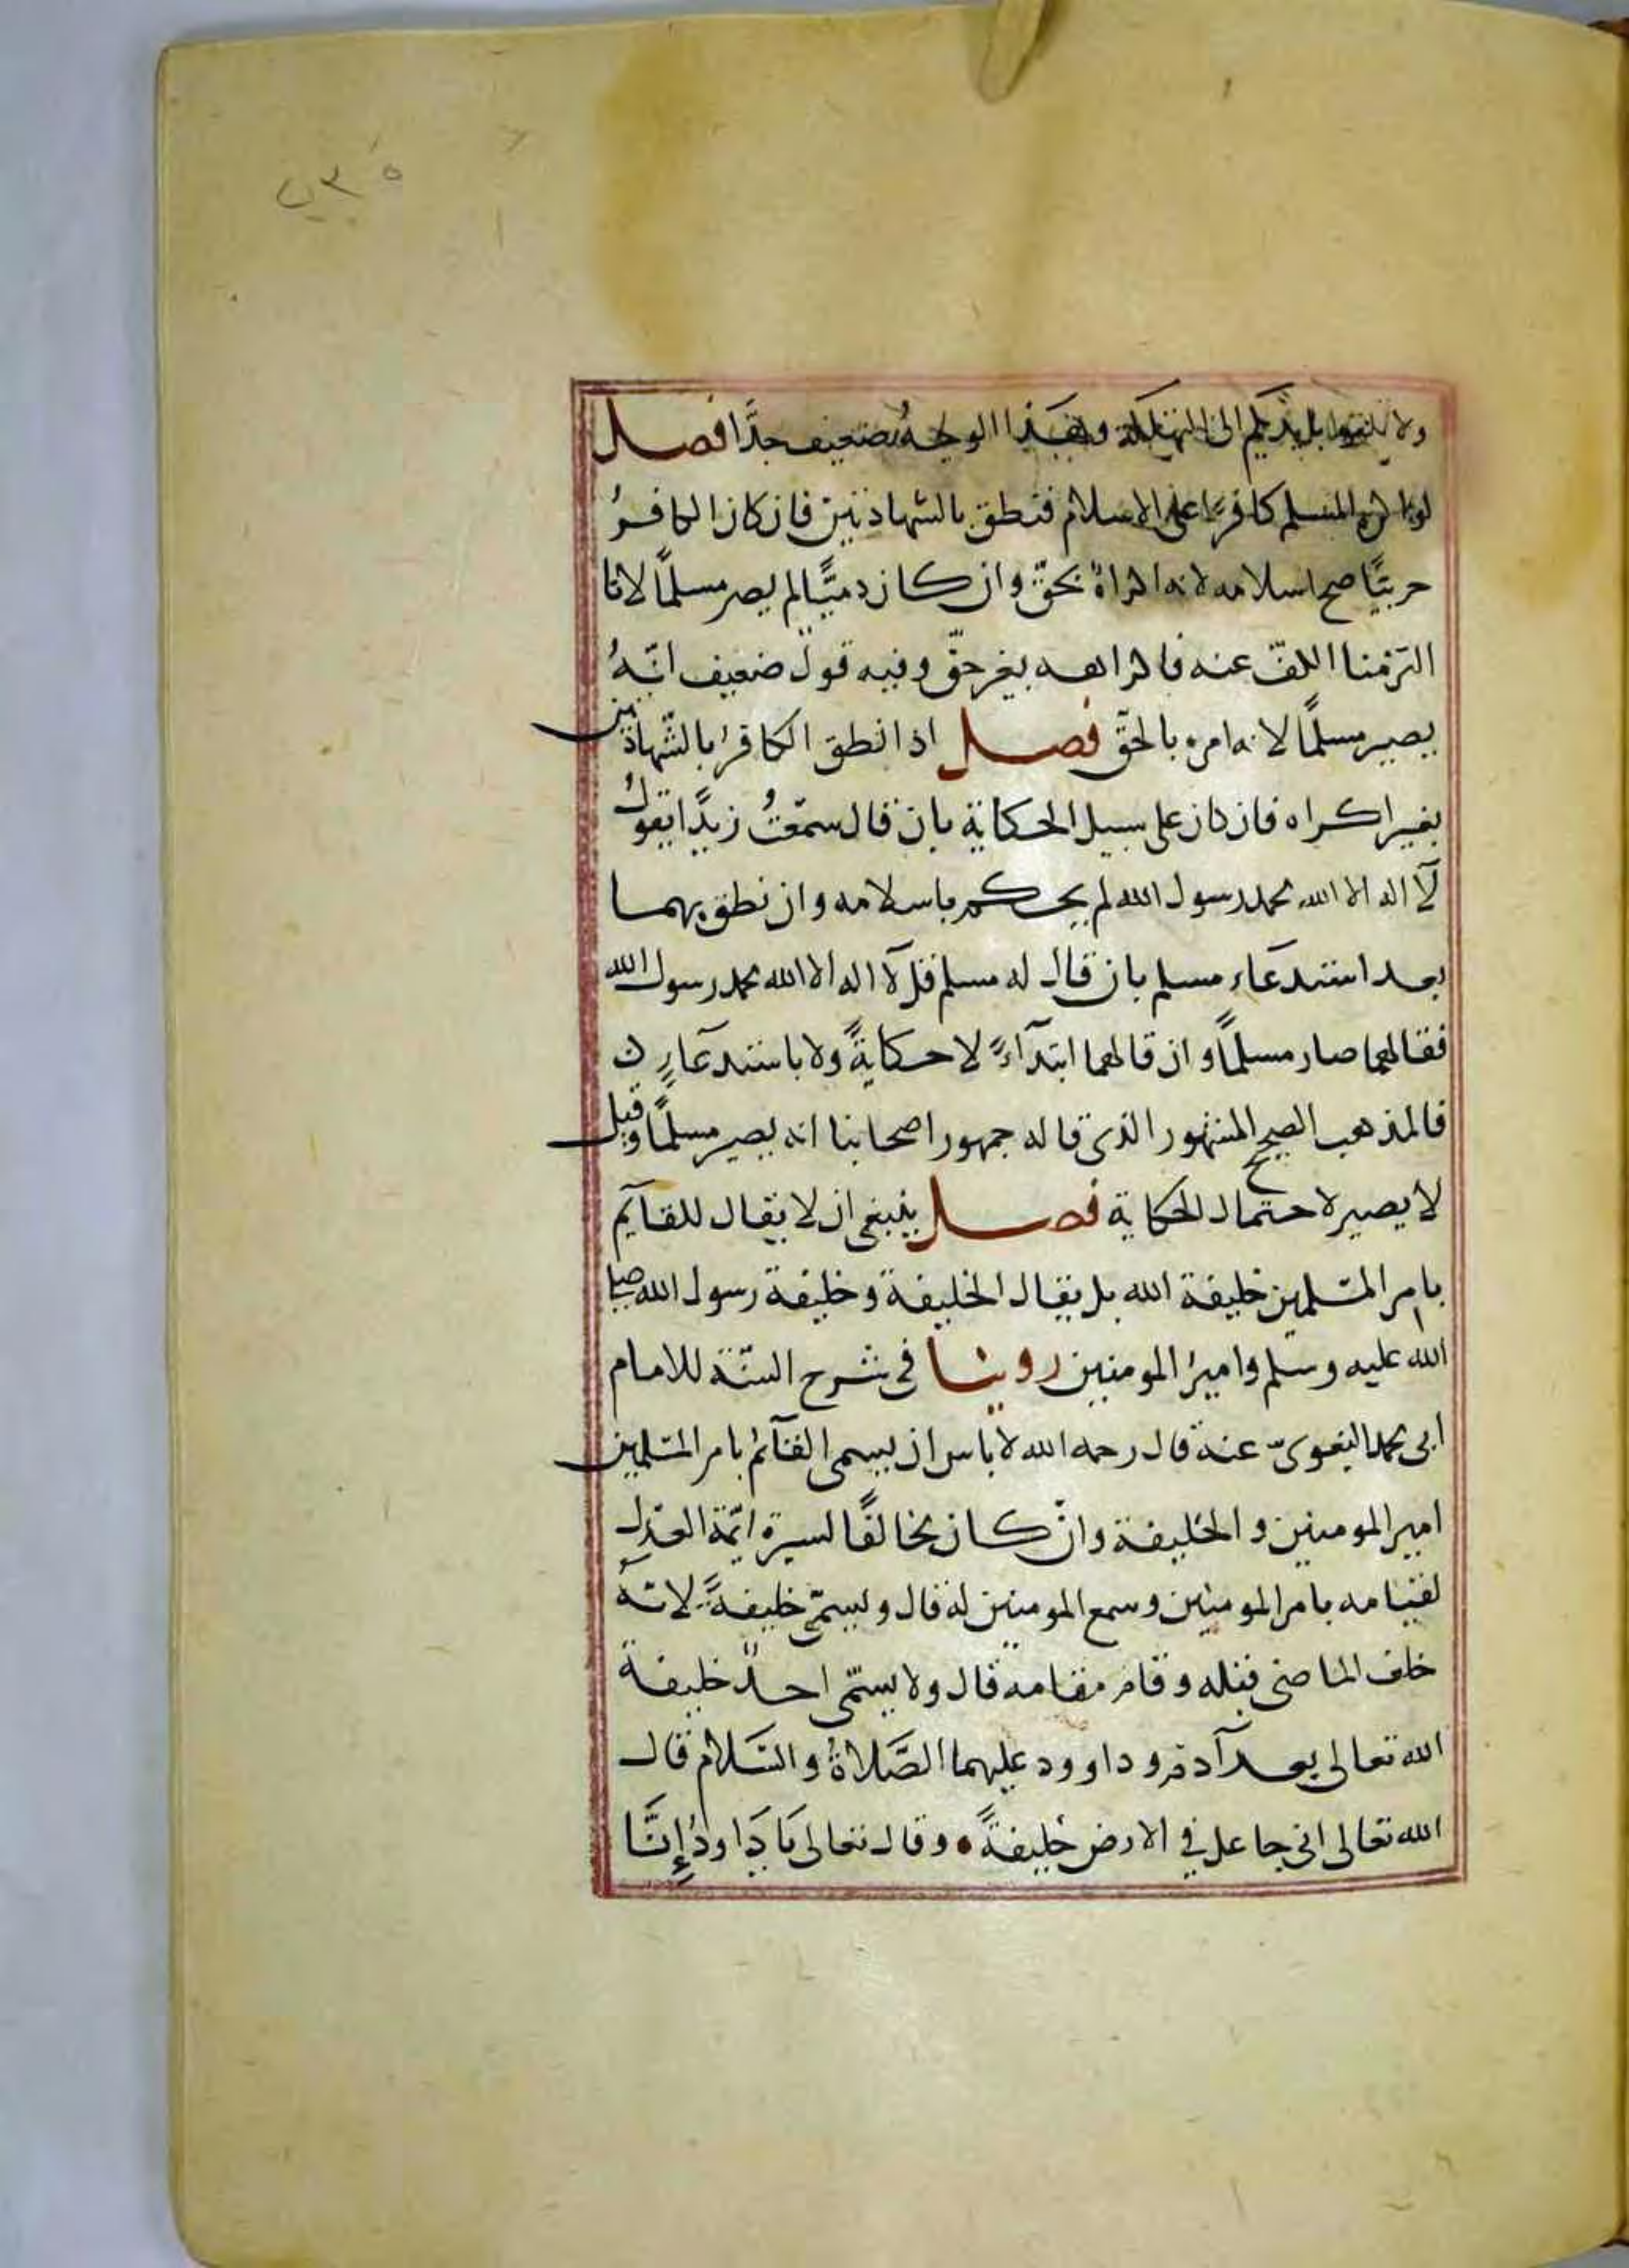 ولا تلقوا بايديكم الى التهلكة وهذا الوجه ضعيف جدًّا فصل
لو اكره المسلم كافرًا على الاسلام فنطق بالشهادتين فان كان الكافرُ
حربيًّا صح اسلامه لانه اكراهٌ بحقّ وان كان ذميًّا لم يصر مسلمًا لانا
التزمنا الكفّ عنه فاكراهه بغير حقّ وفيه قول ضعيف انّهُ
يصير مسلمًا لانه امره بالحقّ فصل اذا نطق الكافرُ بالشّهادتين
بغير اكراه فان كان على سبيل الحكاية بان قال سمعتُ زيدًا يقولُ
لآ اله الا الله محمد رسول الله لم يحكم باسلامه وان نطق بهما
بعد استدعاء مسلم بان قال له مسلم قل لآ اله الا الله محمد رسول الله
فقالهما صار مسلمًا وان قالهما ابتدآءً لا حكايةً ولا باستدعآءٍ
فالمذهب الصحيح المشهور الذى قاله جمهور اصحابنا انه يصير مسلمًا وقيل
لا يصير لاحتمال الحكاية فصل ينبغى ان لا يقال للقآيم
بامر المسلمين خليفة الله بل يقال الخليفة وخليفة رسول الله صلى
الله عليه وسلم وامير المومنين روينا فى شرح السّنّة للامام
ابى محمد البغوىّ عنه قال رحمه الله لا باس ان يسمى القآئم بامر المسلمين
امير المومنين والخليفة وان كان مخالفًا لسيرة ائمّة العدل
لقيامه بامر المومنين وسمع المومنين له قال ويسمّى خليفةً لانّه
خلف الماضى قبله وقام مقامه قال ولا يسمّى احدٌ خليفة
الله تعالى بعد آدم وداوود عليهما الصَّلاةُ والسَّلام قال
الله تعالى انى جاعل فى الارض خليفةً وقال تعالى يَا دَاودُ إِنَّا